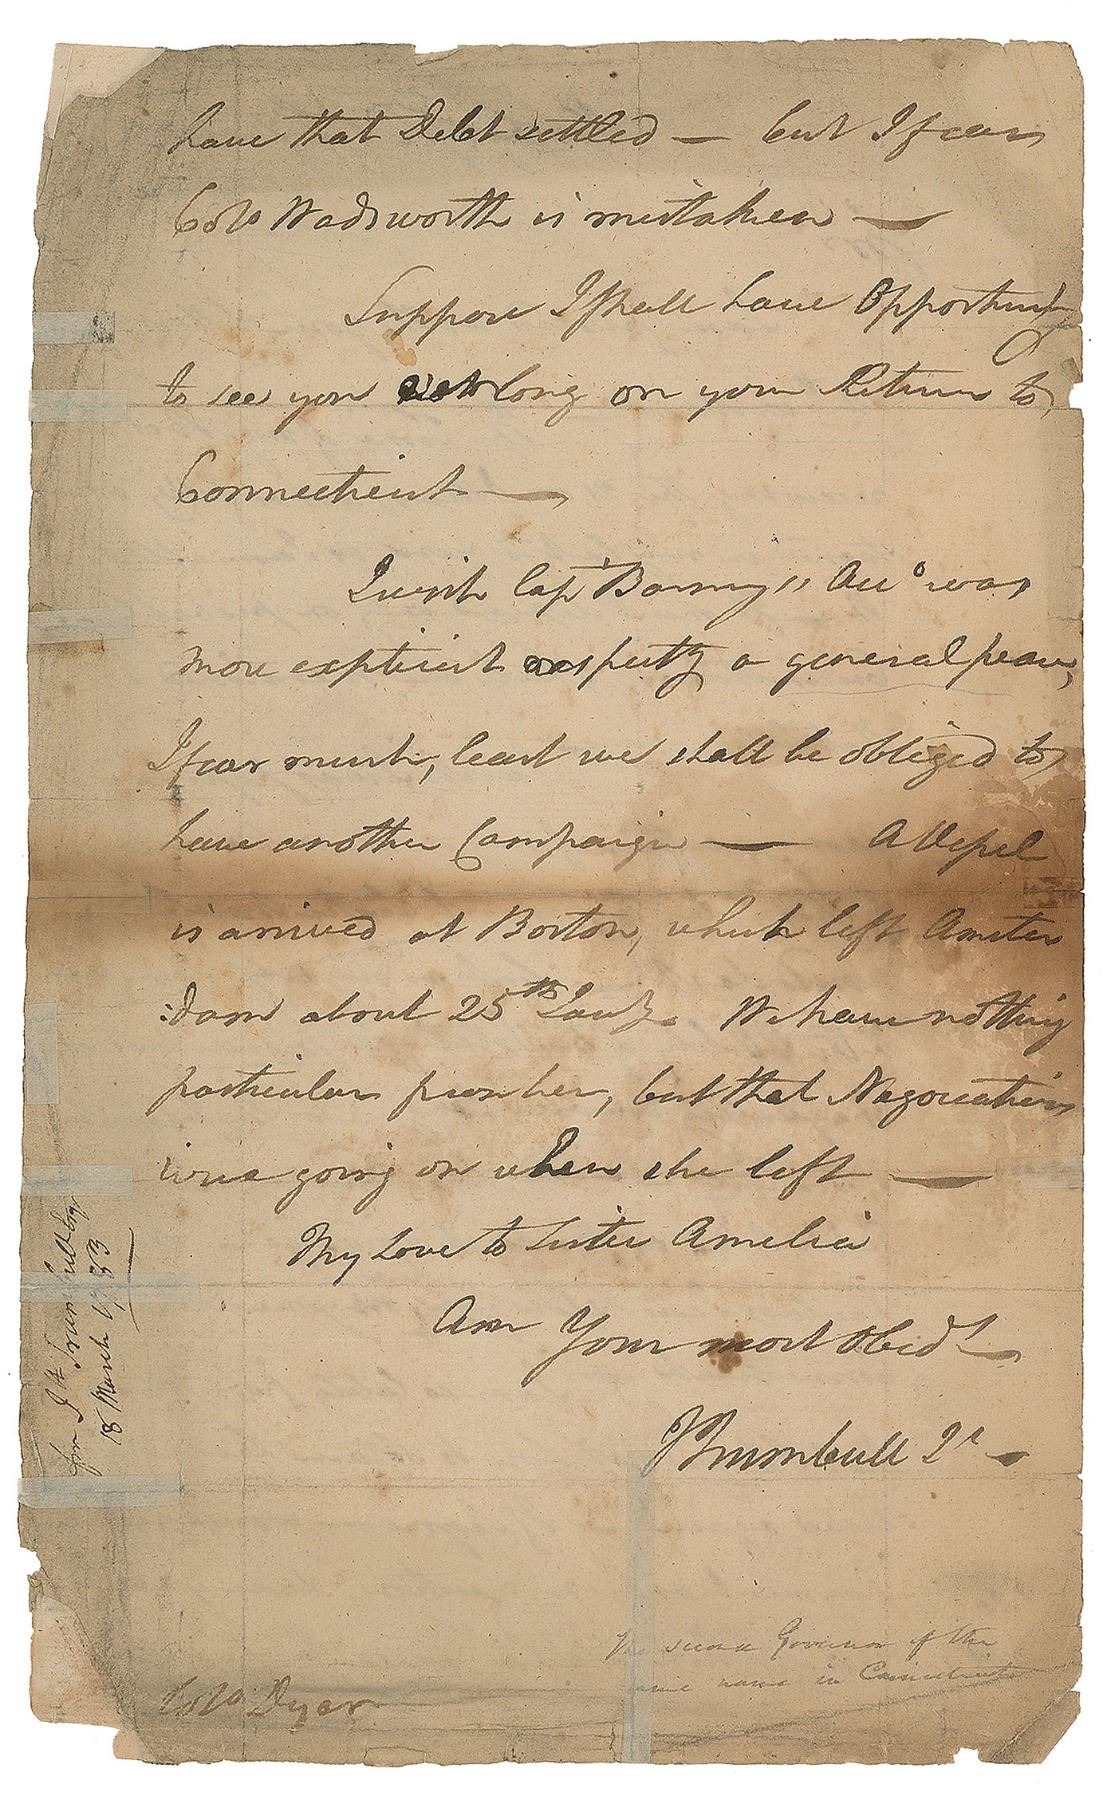 have that Debt settled — but I fear
Colo Wadsworth is mistaken —
Suppose I shall have Opportunity
to see you long on your Return to
Connecticut —
I wish Capt Barny's Acco was
more explicit respectg a general peace,
I fear much, least we shall be obliged to
have another Campaign — A Vessel
is arrived at Boston, which left Amster
:dam about 25th Jany. We have nothing
particular from her, but that Negociations
were going on when she left —
My Love to Sister Amelia
Am Your most Obedt
J Trumbull Jr —
Colo Dyer
The second Governor of the
same name in Connecticut
from Jn Trumbull Esqr
18 March 1783